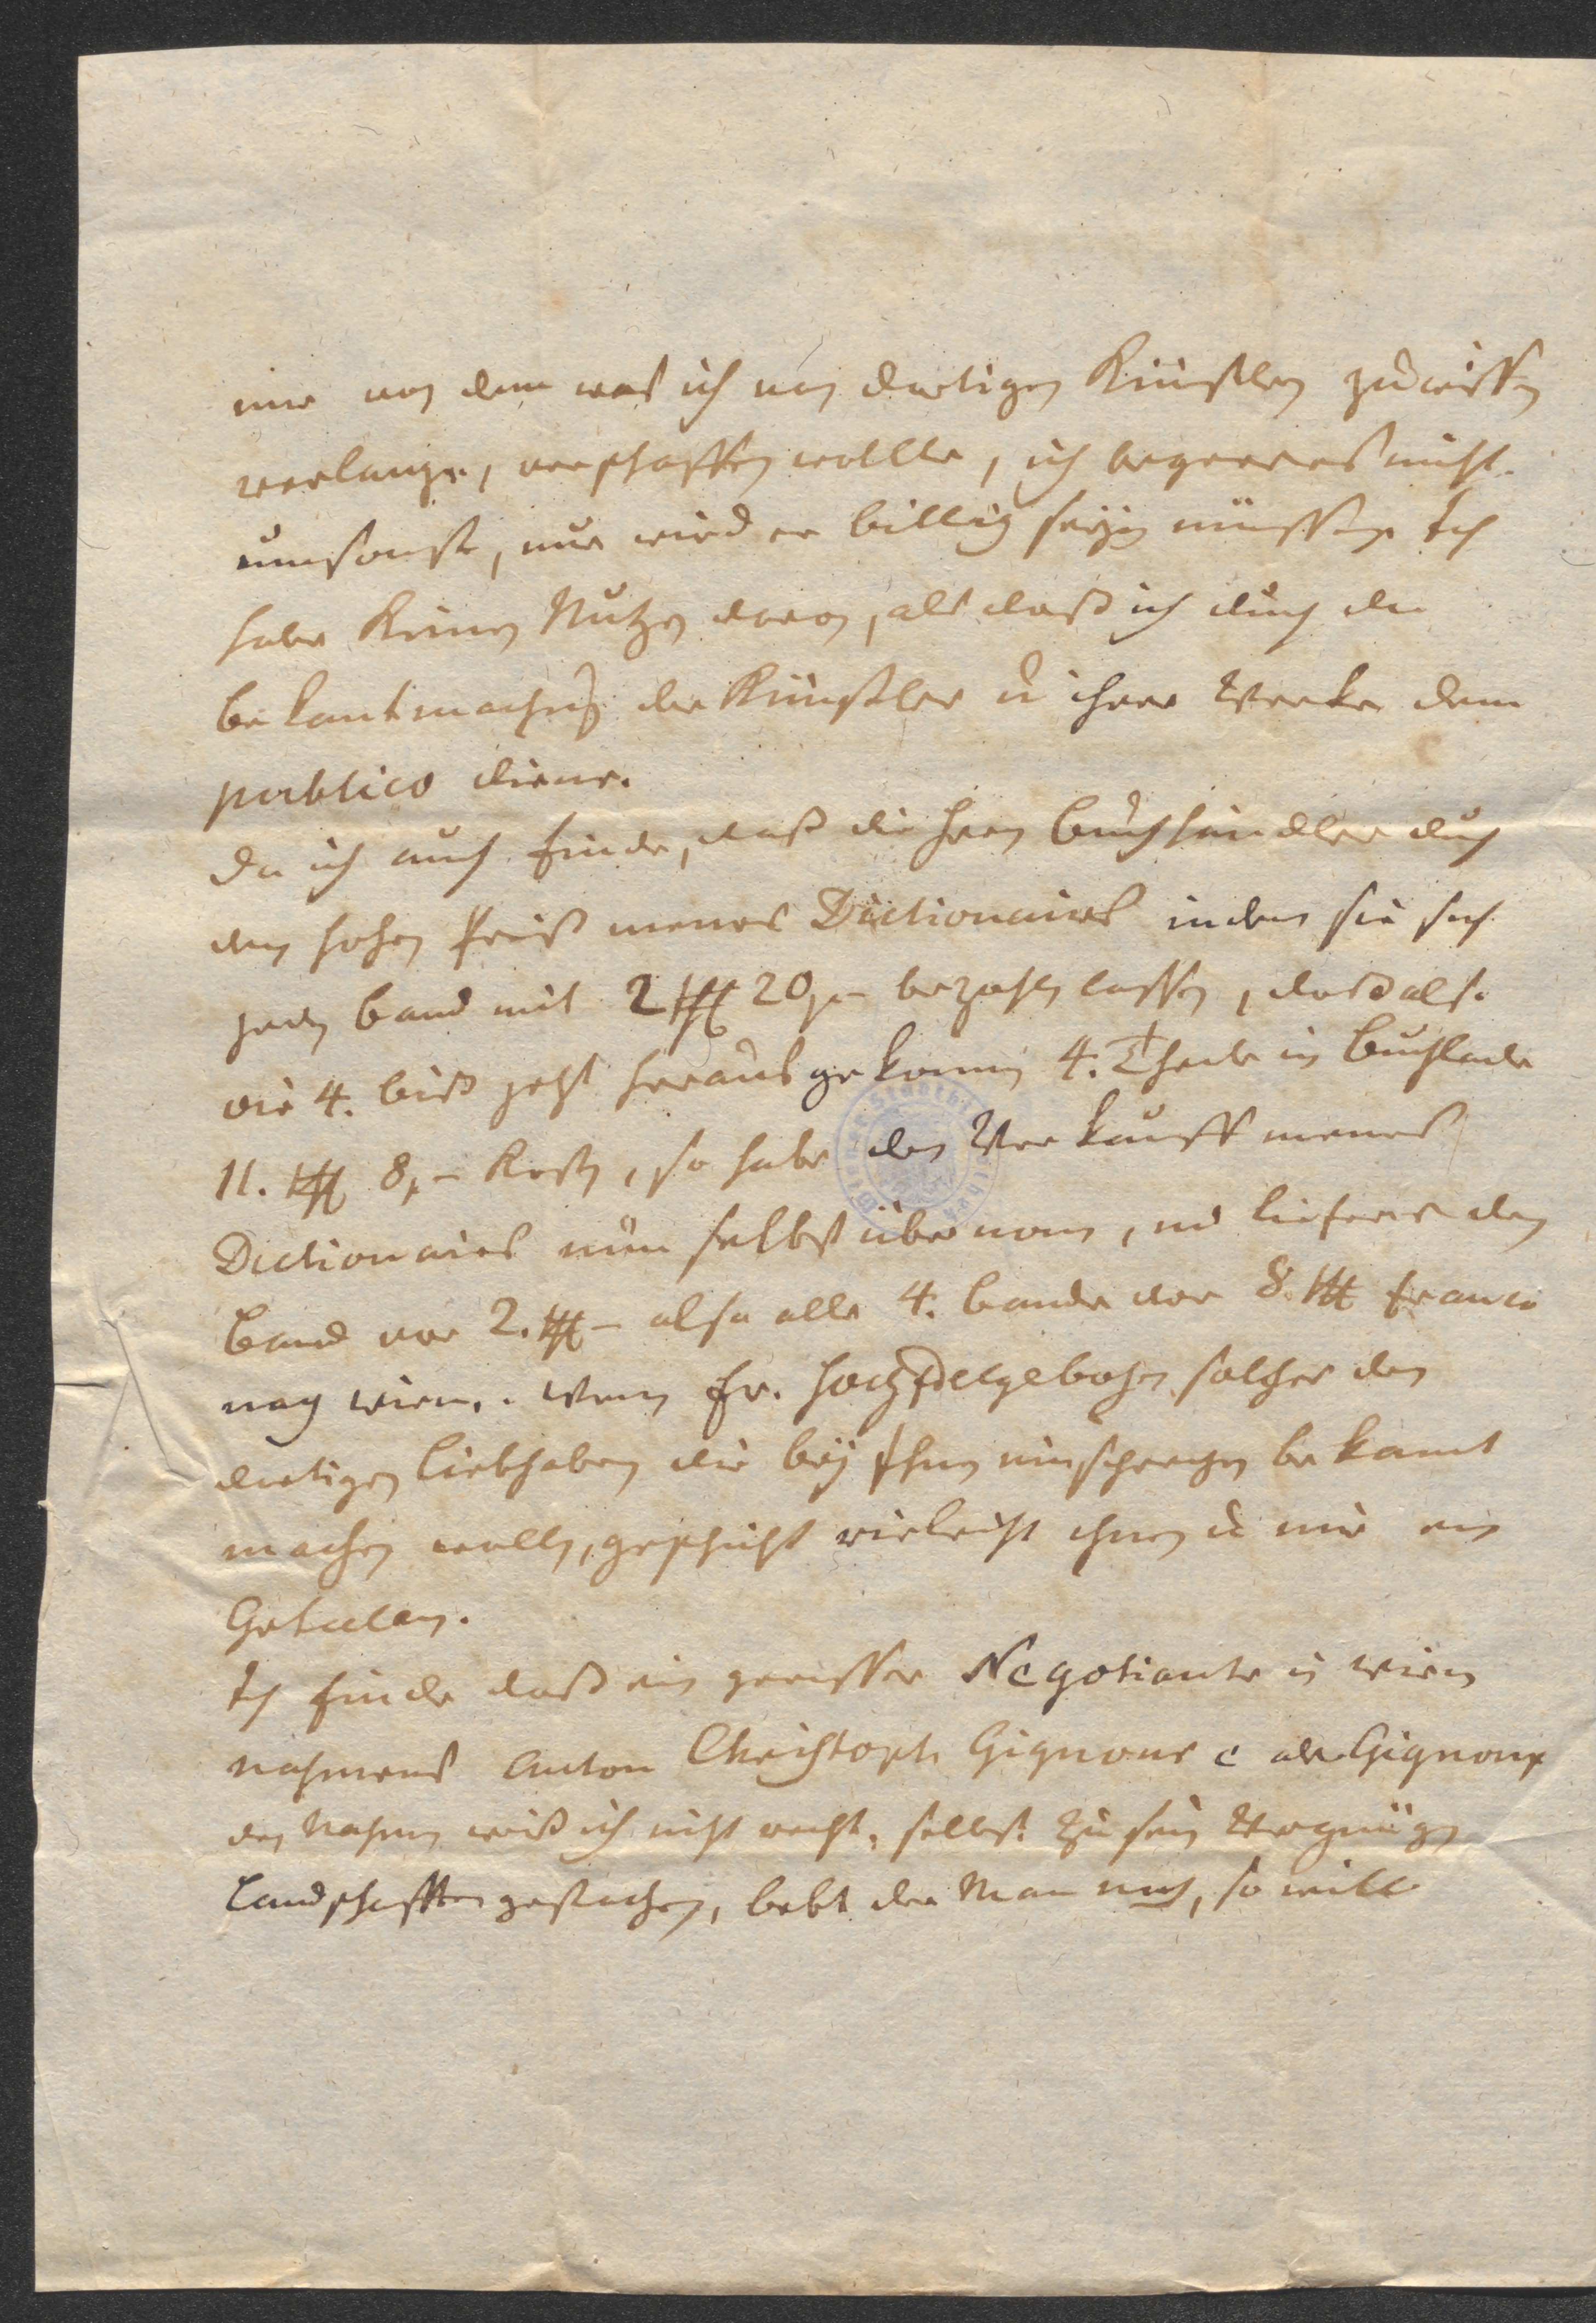 mir von dem was ich von dortigen Künstlern zu wissen
verlange, verschaffen wollte, ich begere es nicht
umsonst, nur wird er billig seyn müssen. Ich
habe keinen Nutzen davon, als daß ich durch die
bekantmachung der Künstler u ihrer Werke dem
publico diene.
Da ich auch finde, daß die Herrn Buchhändler durch
den hohen Preiß meines Dictionaires indem sie sich
jeden Band mit 2 20 bezahlen lassen, daß also
die 4. biß jetzt herausgekommen 4. Theile im Buchladen
11. 8 kosten, so habe den Verkauff meines
Dictionaires nun selbst übernommen, und liefere den
Band vor 2. also alle 4. Bände vor 8. franco
nach Wien. Wenn Ew. HochEdelgebohren solches den
dortigen Liebhabern die bey Ihnen einsprechen bekannt
machen wollen, geschieht vieleicht ihnen u mir ein
Gefallen.
Ich finde daß ein gewisser Negotiante in Wien
nahmens Anton Christoph Gignoux oder Gignoux
den Nahmen weiß ich nicht recht, selbst zu sein Vergnügen
Landschafften gestochen, lebt der Man noch, so will